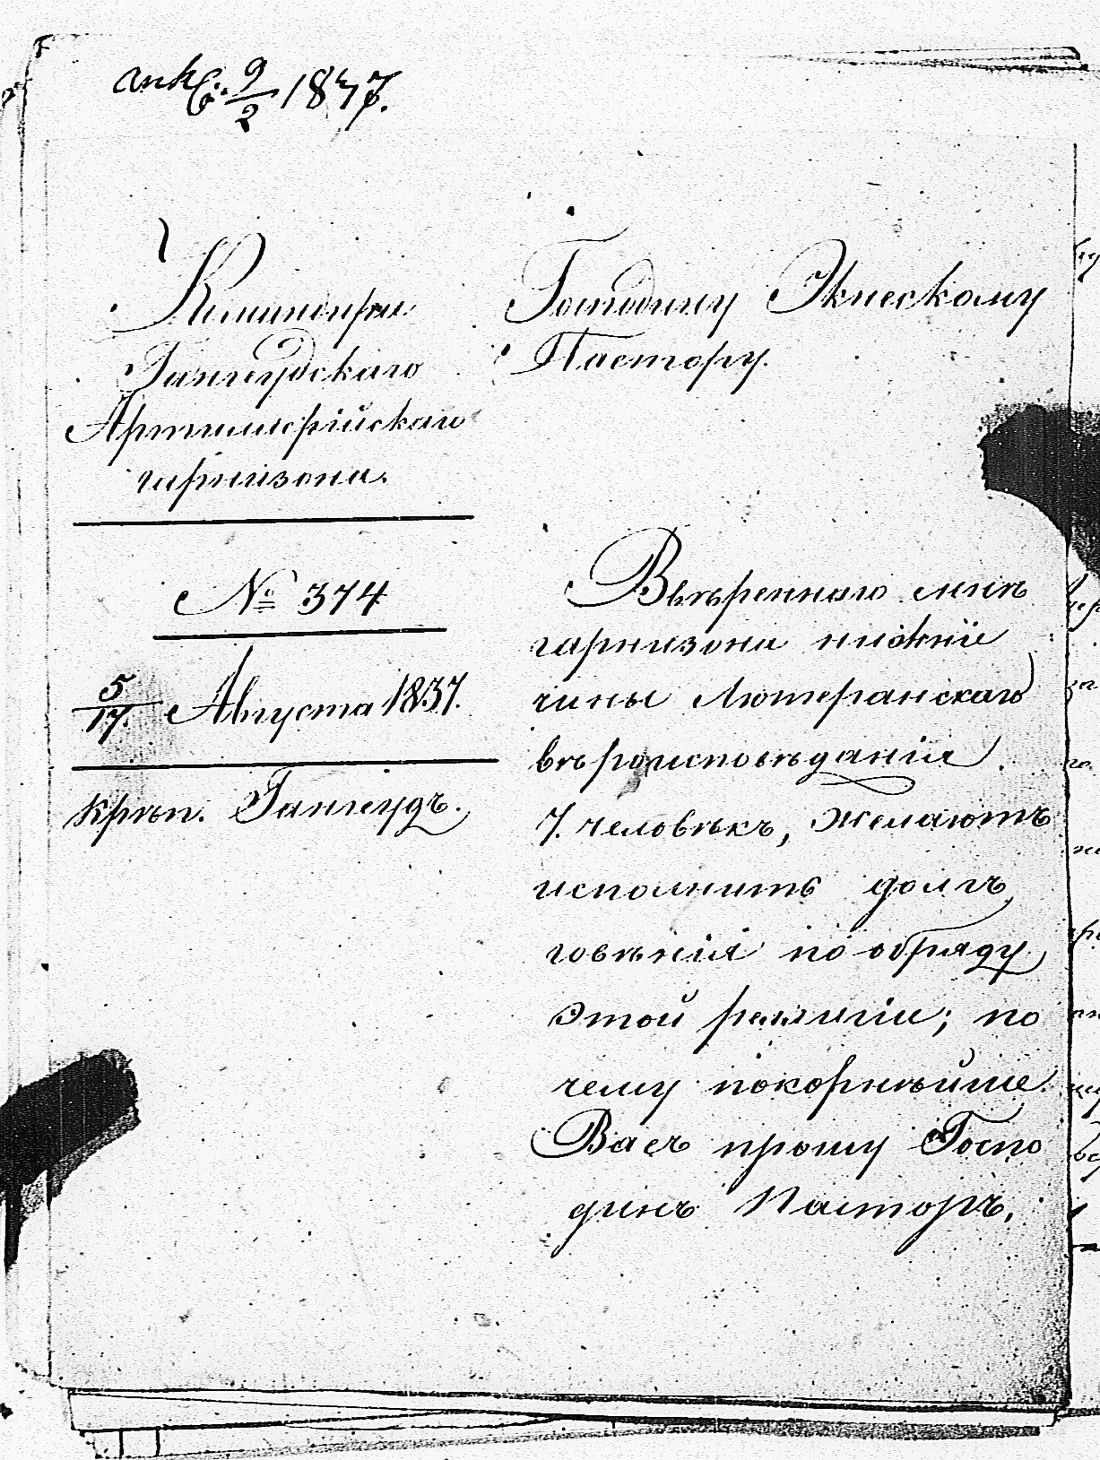 ank. 9/2 1837.
Командира
Гангеудскаго
Артиллерійскаго
гарнизона.
№ 374
5/17. Августа 1837.
крѣп. Гангеудъ.
Господину Экнескому
Пастору.
Ввѣреннаго мнѣ
гарнизона нижніе
чины Лютеранскаго
вѣроисповѣданія
7. человѣкъ, желаютъ
исполнить долгъ
говѣнія по обряду
этой религіи; по
чему покорнѣйше
Васъ прошу Госпо
динъ Пасторъ,